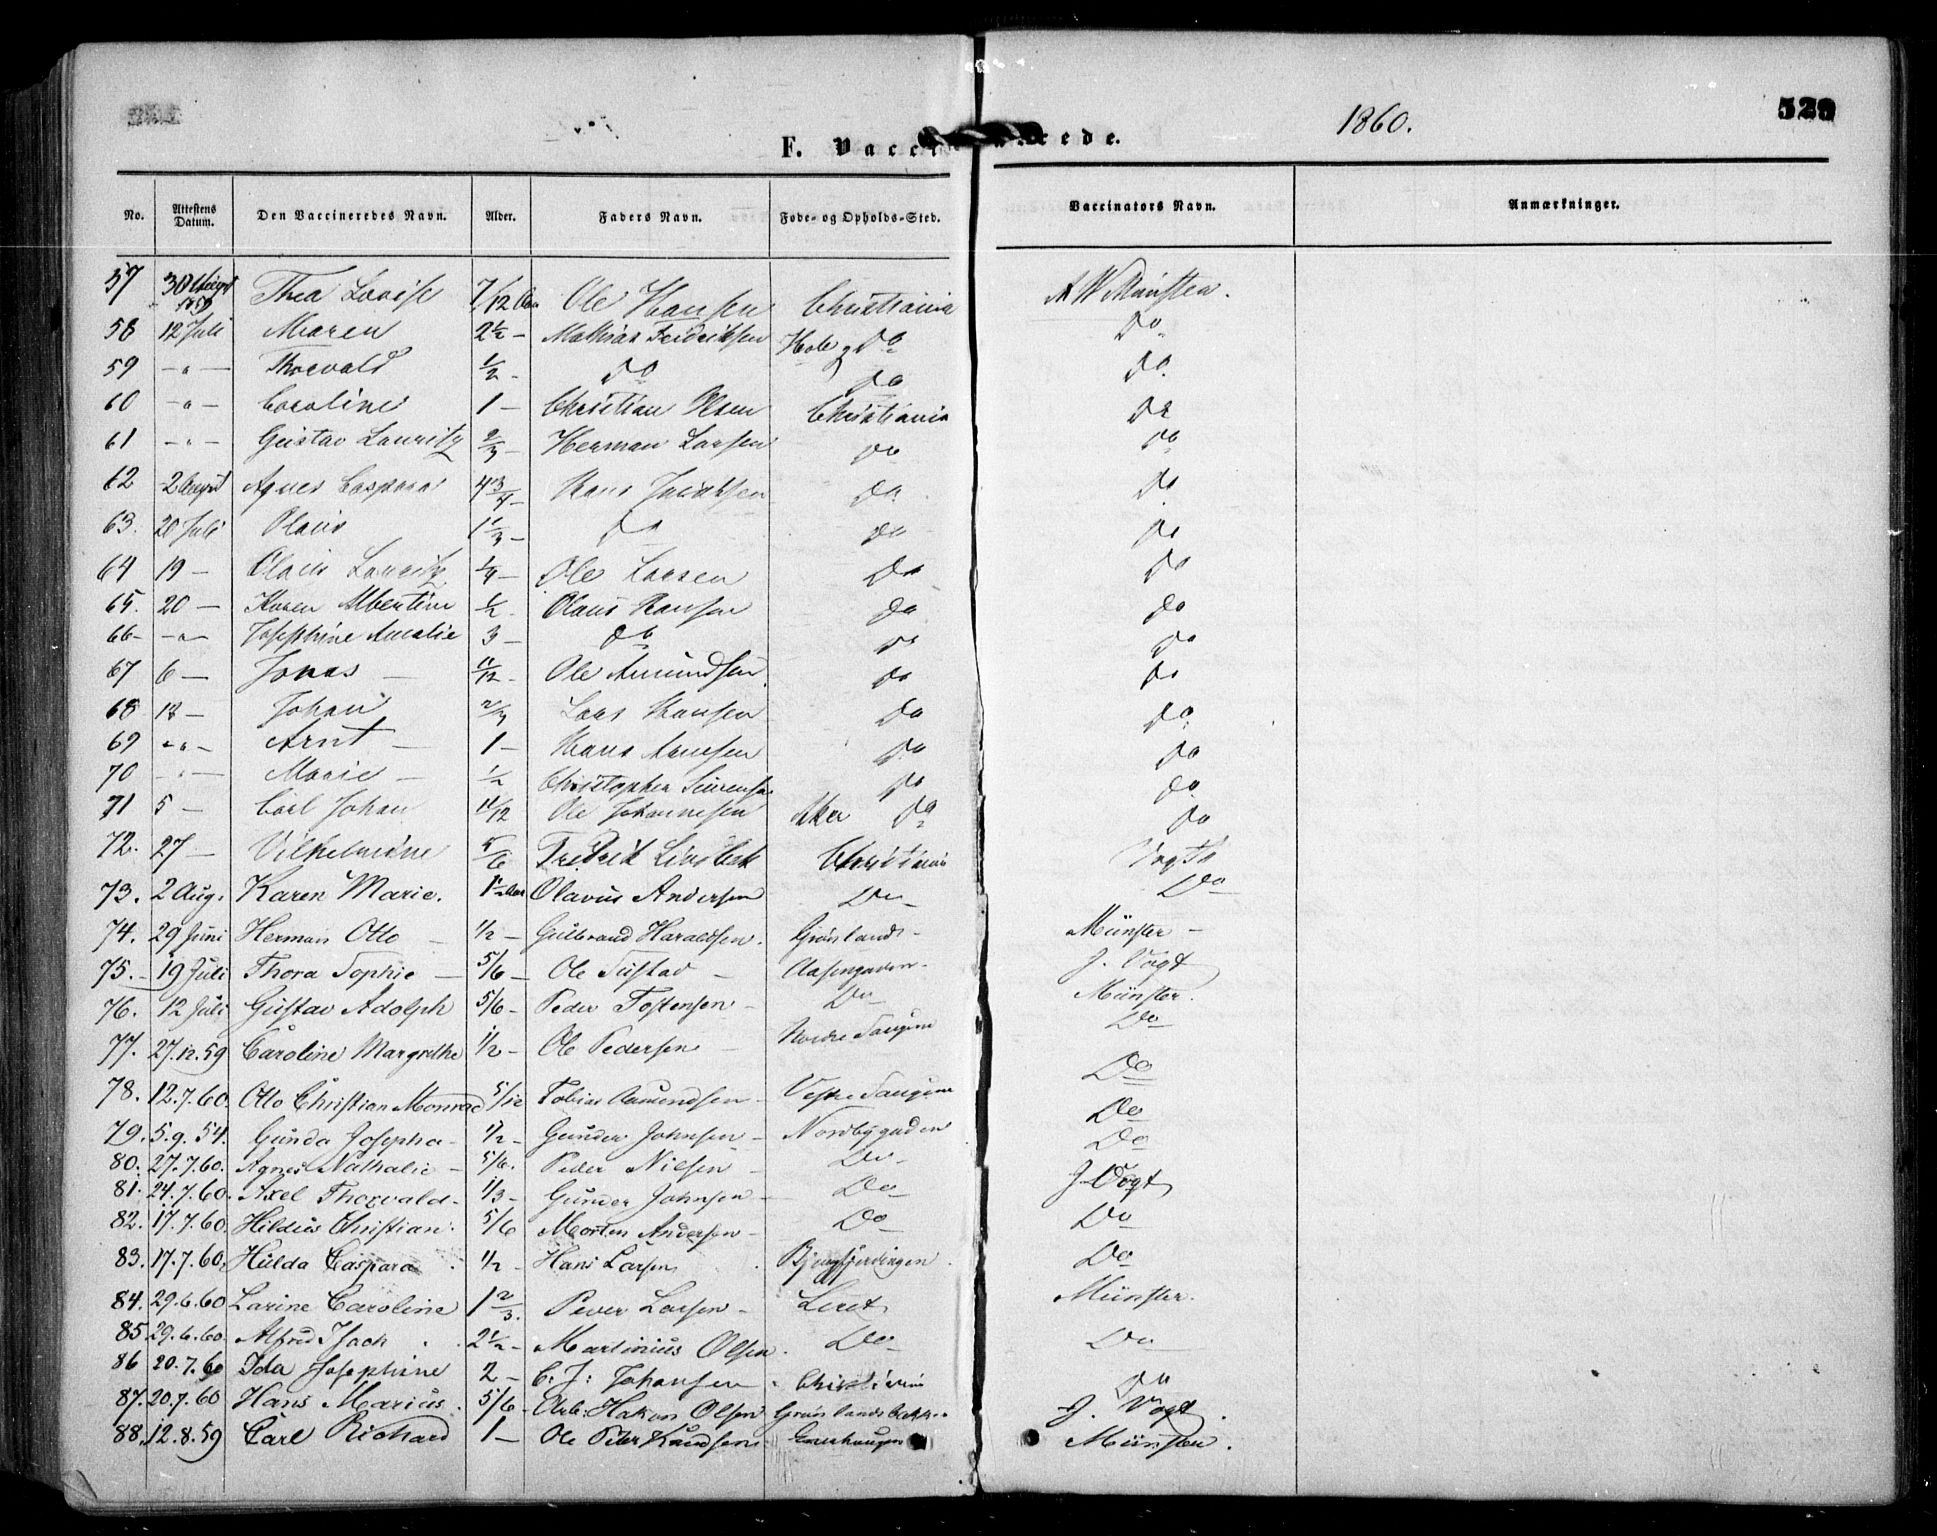 1860.
529
F. Vaccinerede.
No. Attestens Datum. Den Vaccineredes Navn. Alder. Faders Navn. Føde- og Opholds-Sted. Vaccinators Navn. Anmærkninger.
57 30 August 1859 Thea Lovise 7/12 Aar Ole Hansen Christiania Münster.
58 12 Juli Maren 2½ – Mathias Fredriksen Hole Do Do
59 – " – Thorvald ½ – Do Do Do
60 – " – Caroline 1 – Christian Olsen Christiania Do
61 – " – Gustav Lauritz 2/3 – Herman Larsen Do Do
62 2 August Agnes Caspara 4¾ – Hans Jacobsen Do Do
63. 20 Juli Olaus 1 1/3 – Do Do Do
64 19 – Olaus Lauritz ¼ – Ole Larsen Do Do
65. 20 – Karen Albertine ½ – Olaus Hansen Do Do
66 – – " – Josephine Amalie 3 – Do Do Do
67 6 – Jonas – 11/12 – Ole Amundsen Do Do
68 13 – Johan 2/3 Lars Hansen Do Do
69 – " – Arnt – 1 – Hans Do Do
70 – " – Marie – ½ Christopher Do Do
71 5 – Carl Johan 11/12 Ole Johannesen Aker Do Do
72. 27 – Vilhelmine 5/6 Fredrik Christiania Vogt
73. 2 Aug. Karen Marie. 1½ Aar Olavus Andersen Do – Do
74. 29 Juni Herman Otto – 1/2 – Gulbrand Haraldsen. Grønlands – Münster –
75. – 19 Juli Thora Sophie – 5/6 – Ole – Aasengaden – J. Vogt
76. 12 Juli Gustav Adolph 5/6 – Peder Tostensen – Do Münster.
77. 27.12.59 Caroline Margrethe 1/2 – Ole Pedersen – Nordre Do
78. 12.7.60. Otto Christian Monrad 5/12 Tobias Amundsen – Vestre Do
79. 5.9.54. Gunda Josepha – 1/2 – Gunder Johnsen – Nordbygaden Do
80. 27.7.60. Agnes Nathalie – 5/6. Peder Nilsen – Do – Do
81. 24.7.60. Axel Thorvald – 1/3 – Gunder Johnsen – Do J. Vogt
82. 17.7.60. Hildus Christian. 5/6 Morten Andersen – Do Do
83. 17.7.60. Hulda Caspara 1/2 – Hans Larsen Do
84. 29.6.60 Larine Caroline 1 2/3. Peder Larsen – Leret Münster.
85. 29.6.60. Alfred Isach 2½ – Martinius Olsen. Do – Do
86 20.7.60 Ida Josephine 2 – C. J. Johansen – Christiania Do
87. 20.7.60 Hans Marius. 5/6 – Arb: Hakon Olsen Grønlands J. Vogt.
88. 12.8.59 Carl Richard 1 – Ole Peter Knudsen Enerhaugen Münster.